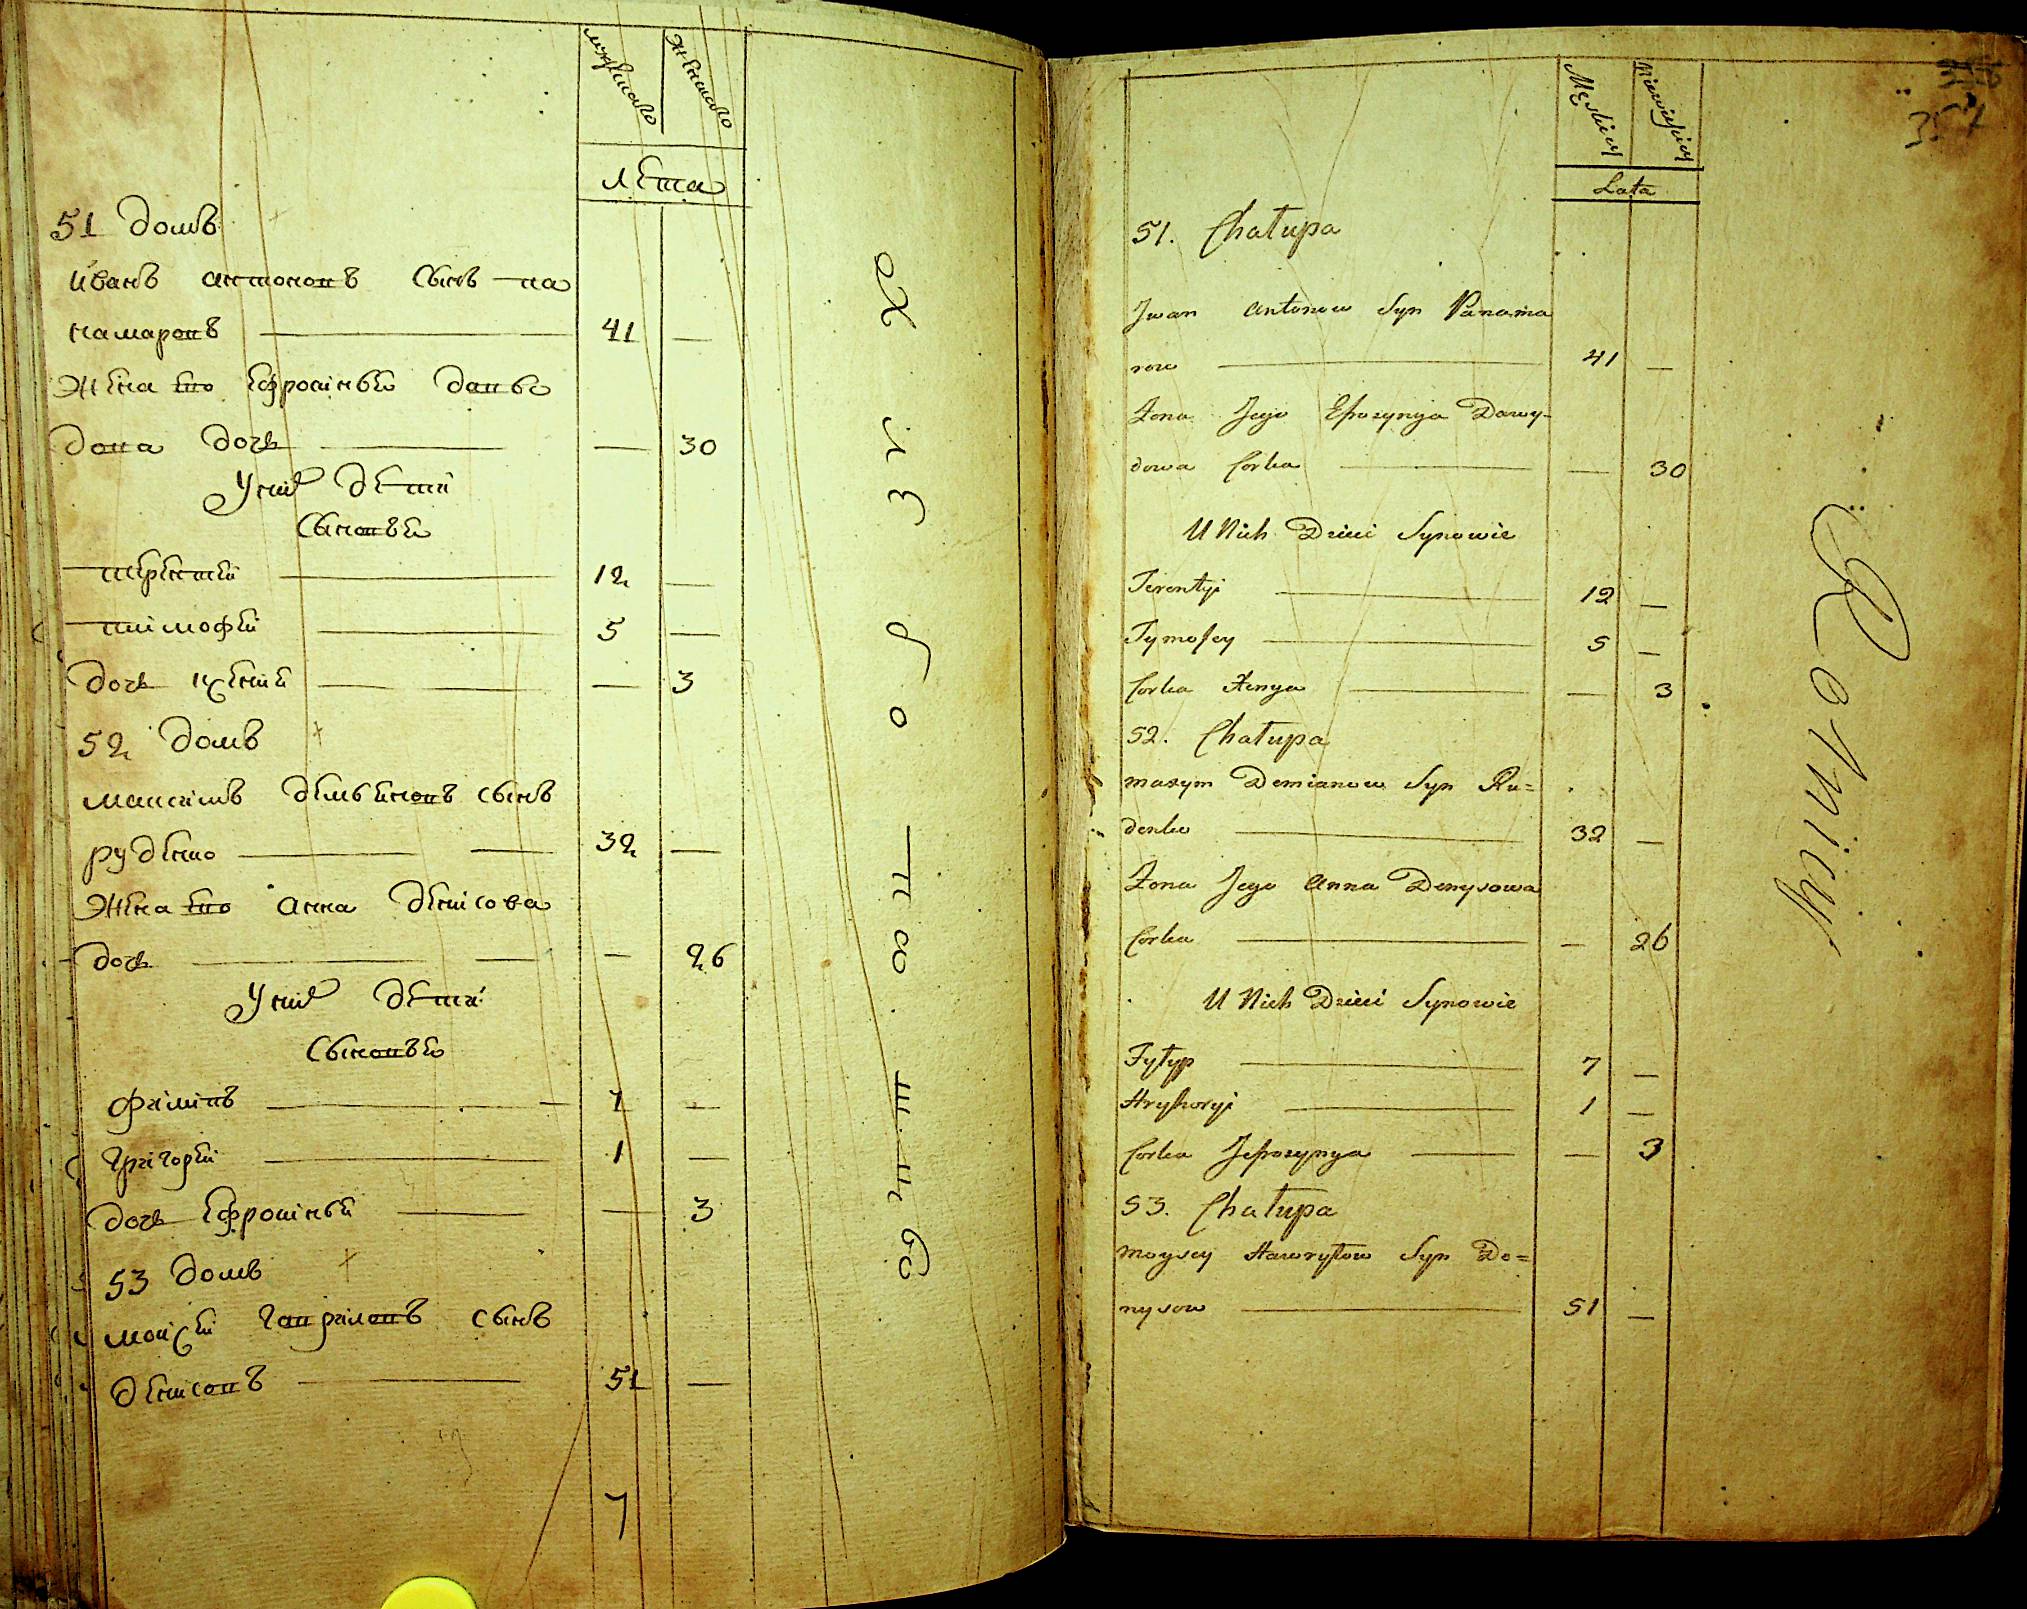 мужеска женска
Лета
51 домъ
Иванъ антоновъ сынъ па
намаровъ 41 —
Жена ево ефросинья давы
дова дочь — 30
У них дети
Сыновья
терентей 12 —
тимофей 5 —
дочь ксения — 3
52 домъ
максимъ демьяновъ сынъ
руденко 32 —
Жена ево анна денисова
дочь — 26
У них дети
Сыновья
филипъ 7 —
григорей 1 —
дочь ефросинья — 3
53 домъ
моисей гавриловъ сынъ
денисовъ 51 —
7
Męskiey Niewieskiey
354
Lata
51. Chałupa
Jwan antonow Syn Panama
row 41 —
Żona Jego Efrozynya Dawy-
dowa Corka — 30
U Nich Dzieci Synowie
Terentyi 12 —
Tymofey 5 —
Corka Xenya — 3
52. Chałupa
maxym Demianow Syn Ru=
denko 32 —
Żona Jego anna Denysowa
Corka — 26
U Nich Dzieci Synowie
Fyłyp 7 —
Hryhoryi 1 —
Corka Jefrozynya — 3
53. Chałupa
moysey Hawryłow Syn De=
nysow 51 —